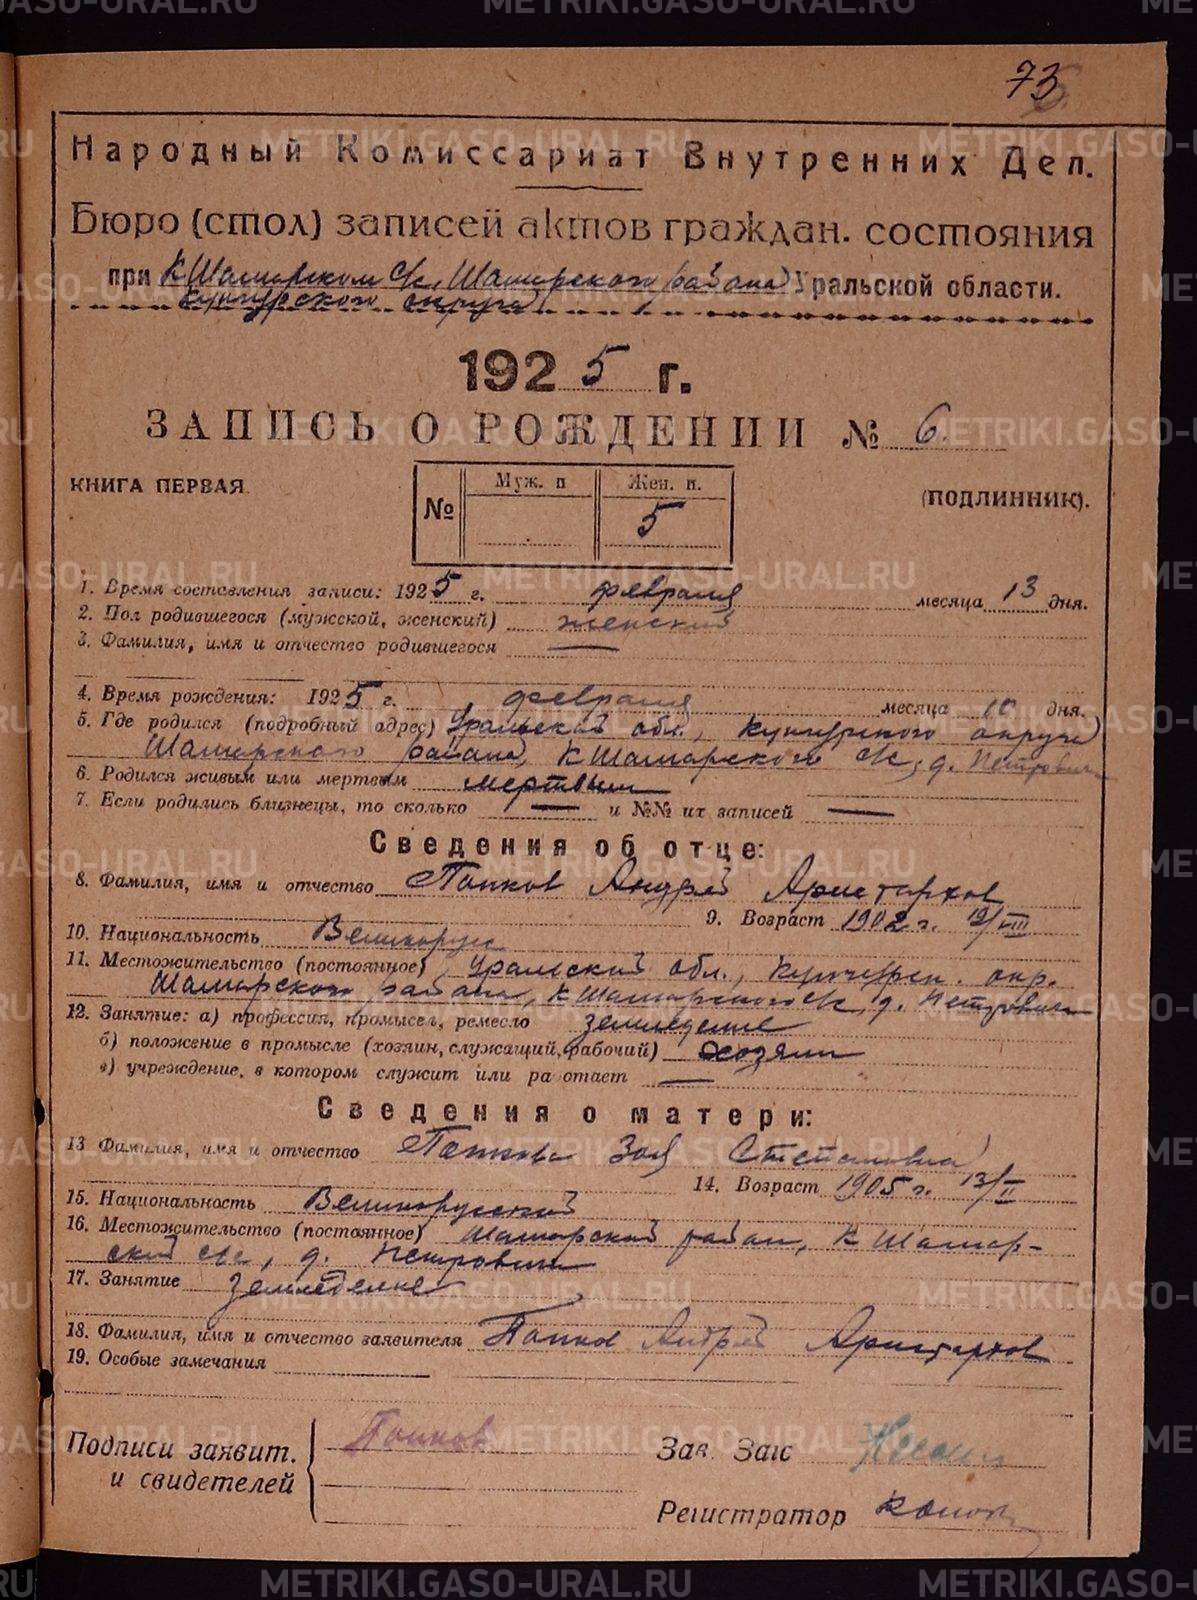 73
Народный Комиссариат Внутренних Дел.
Бюро (стол) записей актов граждан. состояния
при К Шамарском с/с, Шамарского района Уральской области.
Кунгурского округа
1925 г.
ЗАПИСЬ О РОЖДЕНИИ № 6.
КНИГА ПЕРВАЯ
№ Муж. п Жен. п.
5
(подлинник).
1. Время составления записи: 1925 г. февраля месяца 13 дня.
2. Пол родившегося (мужской, женский) женский
3. Фамилия, имя и отчество родившегося —
4. Время рождения: 1925 г. февраля месяца 10 дня.
5. Где родился (подробный адрес) Уральской обл., Кунгурского округа
Шамарского района, К Шамарского с/с, д. Петровичи
6. Родился живым или мертвым мертвым
7. Если родились близнецы, то сколько — и №№ их записей —
Сведения об отце:
8. Фамилия, имя и отчество Попков Андрей Аристархов
9. Возраст 1902 г. 19/VIII
10. Национальность Великорусс
11. Местожительство (постоянное) Уральский обл., Кунгурск. окр.
Шамарского района, К Шамарского с/с, д. Петровичи
12. Занятие: а) профессия, промысел, ремесло земледелие
б) положение в промысле (хозяин, служащий, рабочий) хозяин
в) учреждение, в котором служит или ра отает —
Сведения о матери:
13 Фамилия, имя и отчество Попкова Зоя Степановна
14. Возраст 1905 г. 13/II
15. Национальность Великорусской
16. Местожительство (постоянное) Шамарской район, К Шамар-
ский с/с, д. Петровичи
17. Занятие земледелие
18. Фамилия, имя и отчество заявителя Попков Андрей Аристархов
19. Особые замечания
Подписи заявит. Попков
и свидетелей
Зав. Загс
Регистратор
METRIKI.GASO-URAL.RU